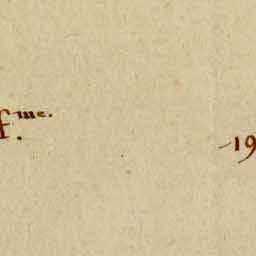 f.me. -19